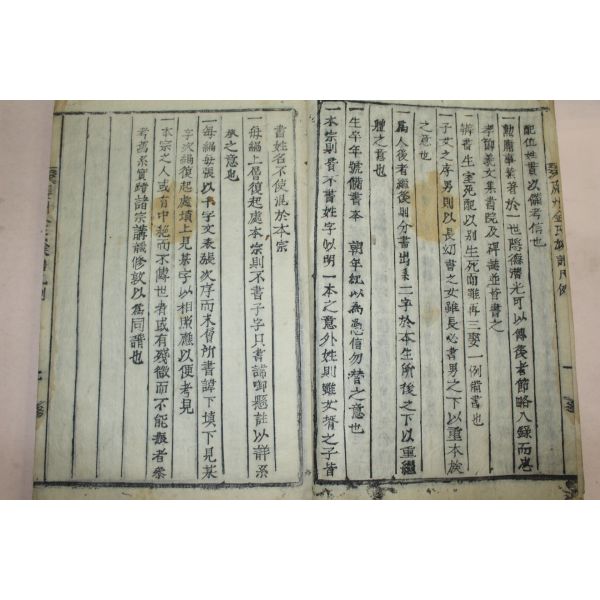 廣州金氏族譜凡例
配位姓貫以備考信也
一勲庸事業著於一世隱德潛光可以傳後者節略入錄而忠
孝節義文集書院及碑誌並皆書之
室死配以別生死而雖再三娶一例俻書也
子女之序男則以長幼書之女雖長必書男之下以重本
之意也
爲人後者繼後則分書出系二字於本生所後之下以重繼
體之意也
一生卒年號俻書本朝年紀以為憑信勿替之意也
一本宗則貫不書姓字以明一本之意外姓則雖女壻之子皆
書姓名不使混於本宗
一每編上層復起處本宗則不書子字只書諱啣懸註以詳系
之意也
一每編每張以千字文表張次序而末層所書諱下填下見某
字次編復起處墳上見某字以相照應以便考見
本宗之人或有中絶而不傳世者或有殘微而不能叅者
考舊系實蹟諸宗講議修敦以爲同譜也